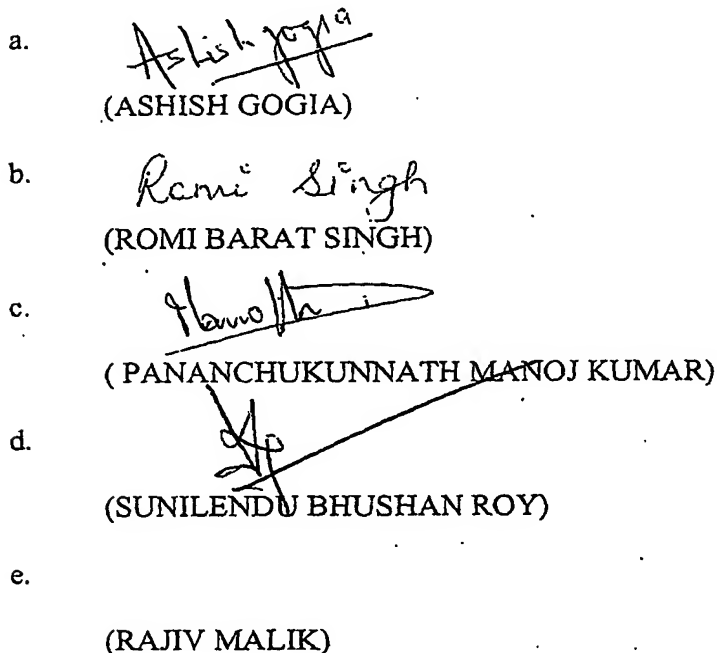 a.
Ashish Gogia
(ASHISH GOGIA)
b.
Romi Singh
(ROMI BARAT SINGH)
c.
( PANANCHUKUNNATH MANOJ KUMAR)
d.
(SUNILENDU BHUSHAN ROY)
e.
(RAJIV MALIK)